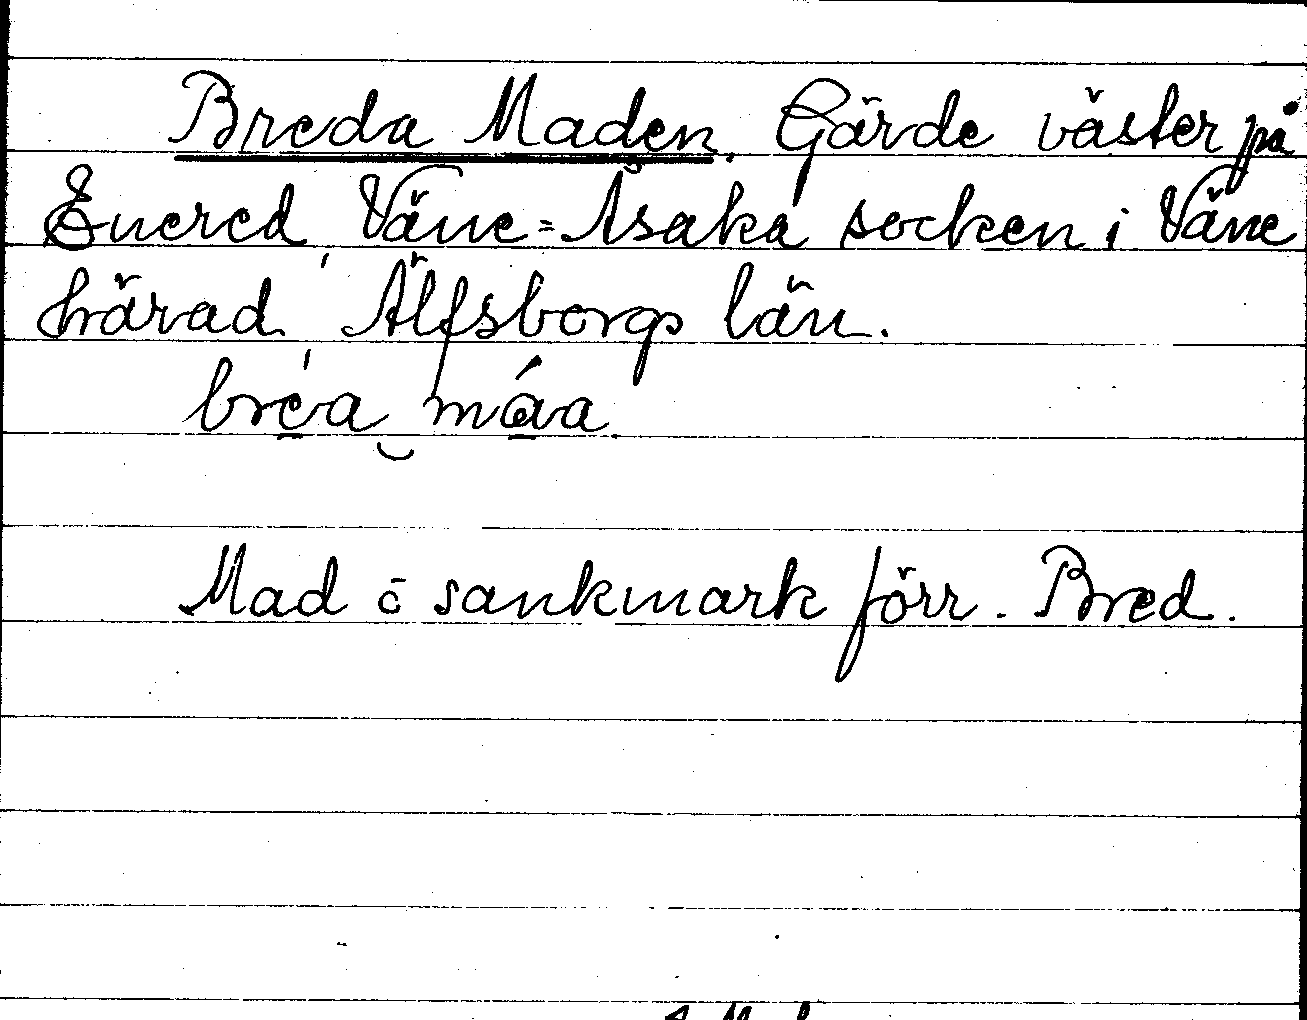 Breda Maden. Gärde väster på
Enered, Väne=Åsaka socken i Väne
härad, Älfsborgs län.
bréa máa.
Mad ō sankmark förr. Bred.